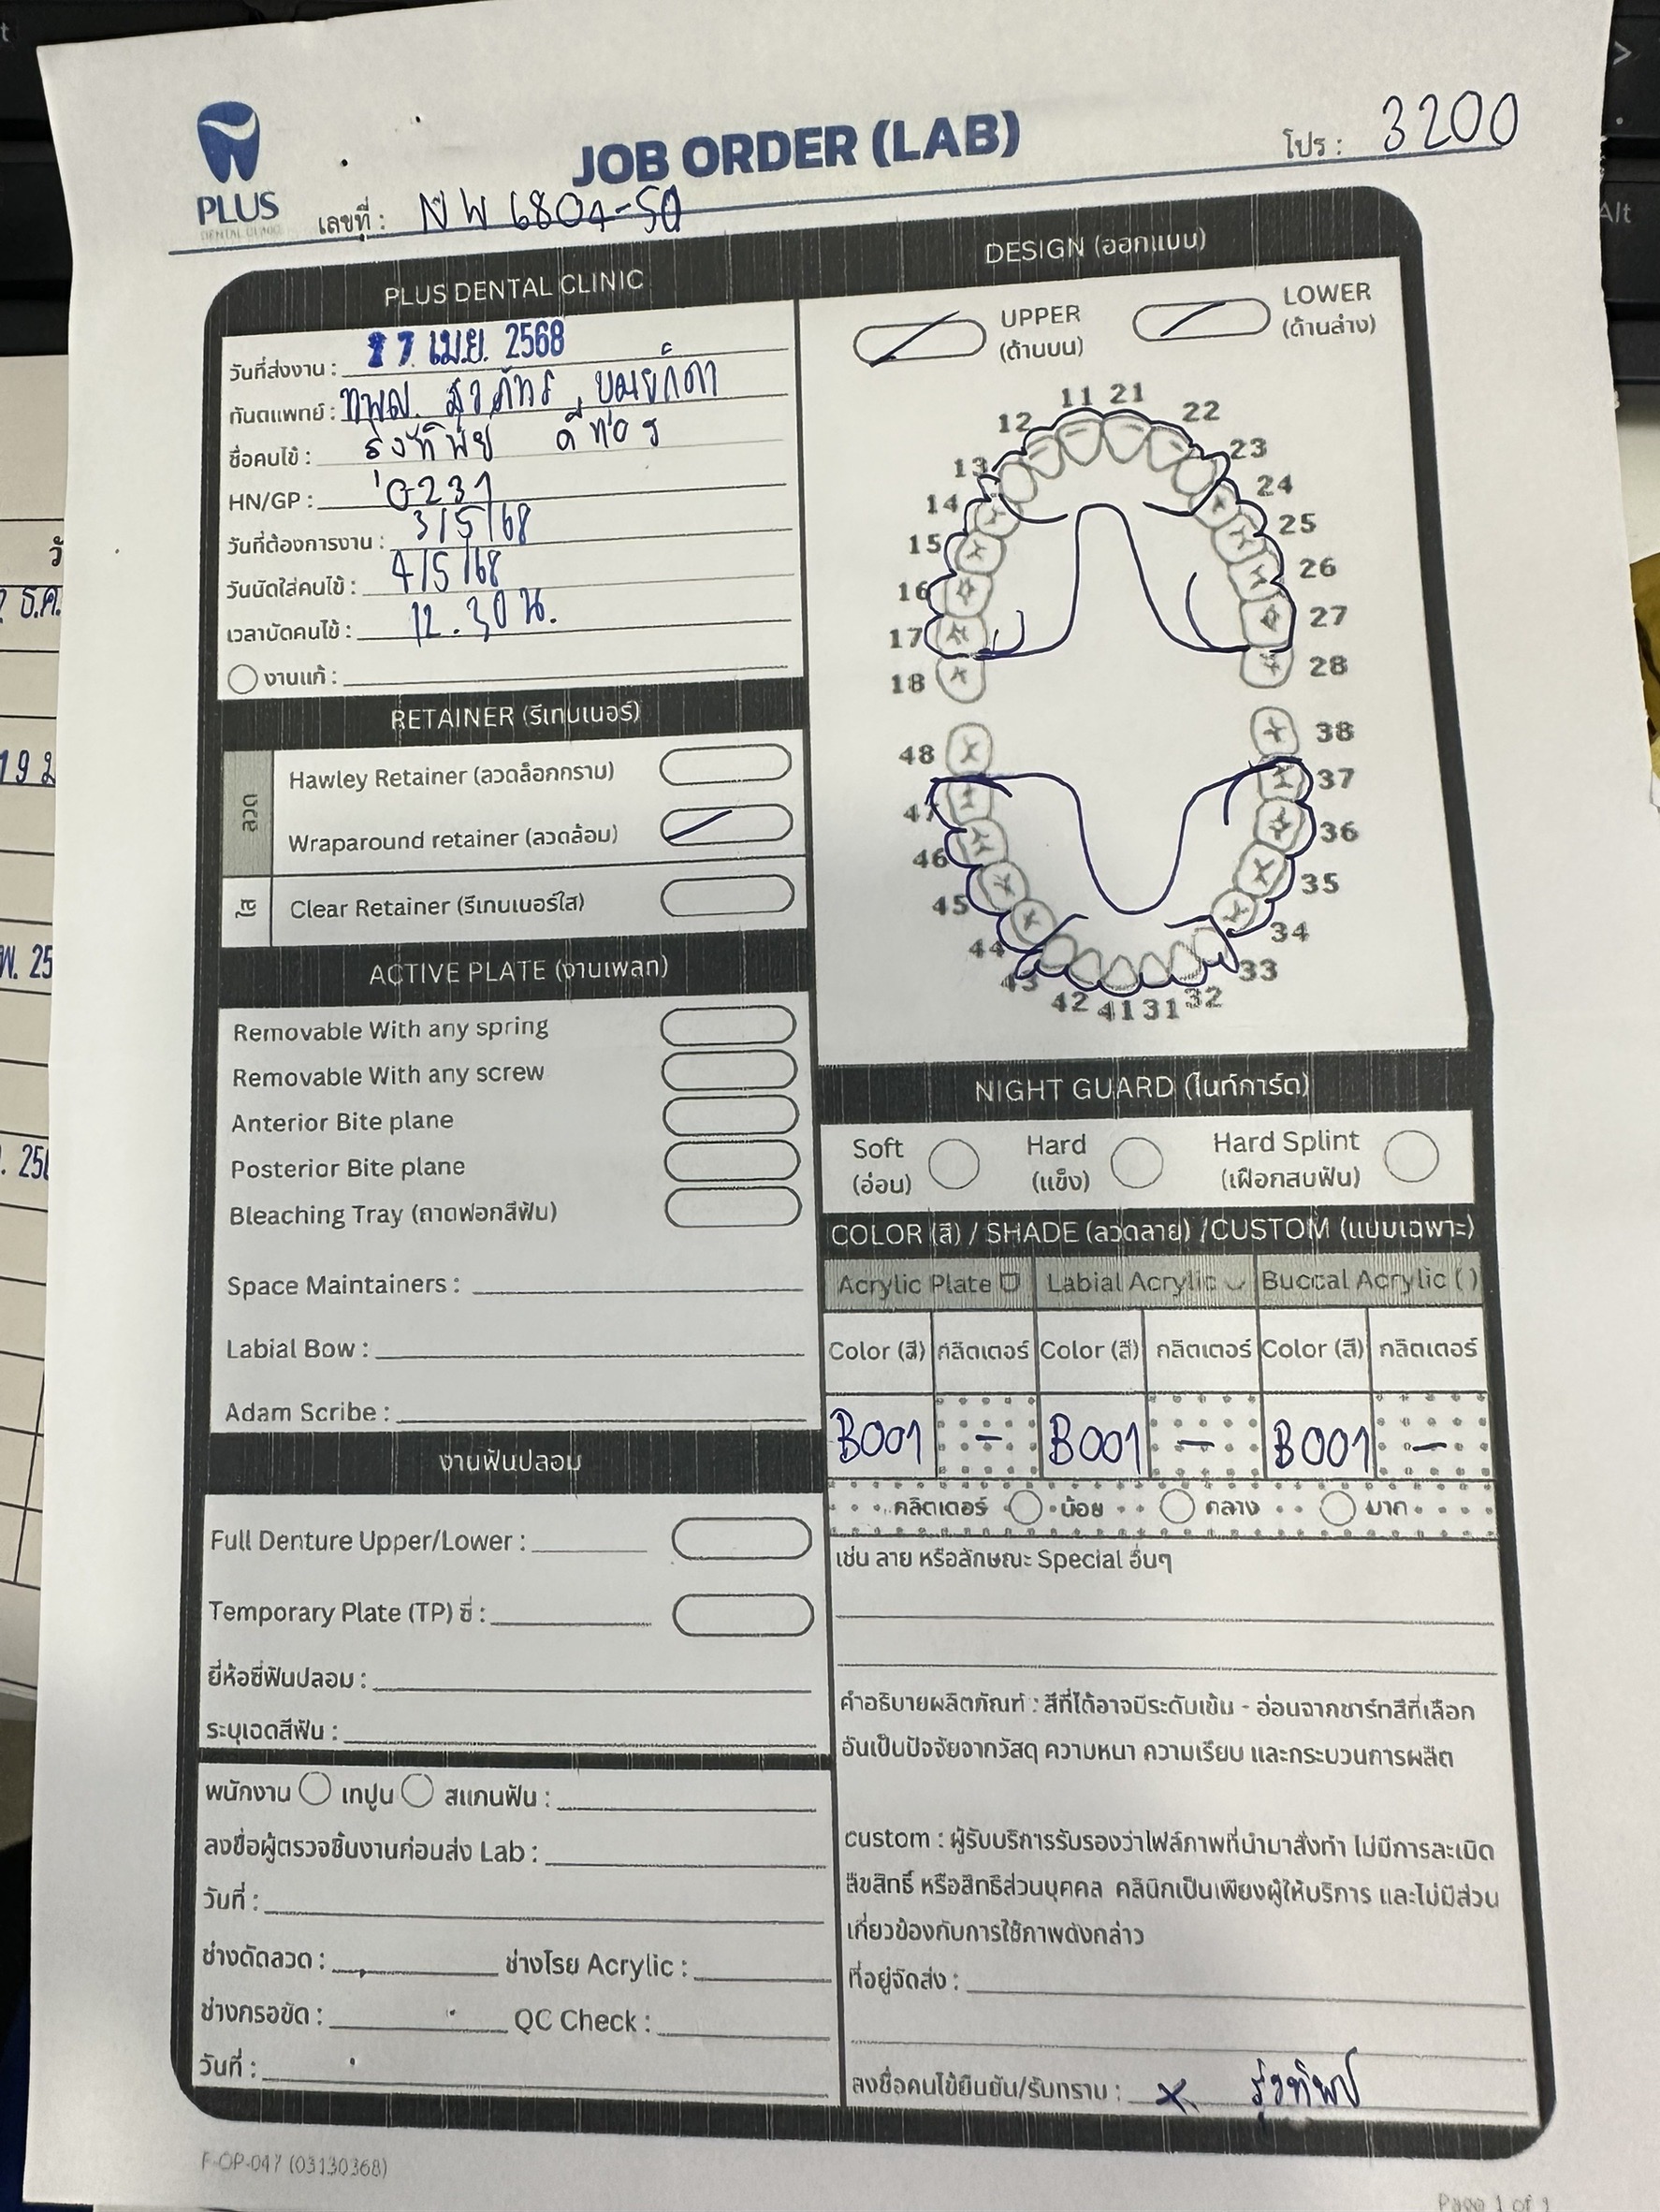 PLUS
DENTAL CLINIC
JOB ORDER (LAB)
โปร : 3200
เลขที่ : NW 6804-50
PLUS DENTAL CLINIC
วันที่ส่งงาน : 27 เม.ย. 2568
ทันตแพทย์ : ทพญ.
ชื่อคนไข้ :
HN/GP : 0231
วันที่ต้องการงาน : 3/5/68
วันนัดใส่คนไข้ : 4/5/68
เวลานัดคนไข้ : 12.30 น.
งานแก้ :
RETAINER (รีเทนเนอร์)
ลวด
Hawley Retainer (ลวดล็อกกราม)
Wraparound retainer (ลวดล้อม)
ใส
Clear Retainer (รีเทนเนอร์ใส)
ACTIVE PLATE (งานเพลท)
Removable With any spring
Removable With any screw
Anterior Bite plane
Posterior Bite plane
Bleaching Tray (ถาดฟอกสีฟัน)
Space Maintainers :
Labial Bow :
Adam Scribe :
งานฟันปลอม
Full Denture Upper/Lower :
Temporary Plate (TP) ซี่ :
ยี่ห้อซี่ฟันปลอม :
ระบุเฉดสีฟัน :
พนักงาน เทปูน สแกนฟัน :
ลงชื่อผู้ตรวจชิ้นงานก่อนส่ง Lab :
วันที่ :
ช่างดัดลวด : ช่างโรย Acrylic :
ช่างกรอขัด : QC Check :
วันที่ :
DESIGN (ออกแบบ)
UPPER (ด้านบน)
LOWER (ด้านล่าง)
11 21
12 22
13 23
14 24
15 25
16 26
17 27
18 28
48 38
47 37
46 36
45 35
44 34
43 33
42 41 31 32
NIGHT GUARD (ไนท์การ์ด)
Soft (อ่อน)
Hard (แข็ง)
Hard Splint (เฝือกสบฟัน)
COLOR (สี) / SHADE (ลวดลาย) /CUSTOM (แบบเฉพาะ)
Acrylic Plate Labial Acrylic Buccal Acrylic ( )
Color (สี) กลิตเตอร์ Color (สี) กลิตเตอร์ Color (สี) กลิตเตอร์
B001 - B001 - B001 -
กลิตเตอร์ น้อย กลาง มาก
เช่น ลาย หรือลักษณะ Special อื่นๆ
คำอธิบายผลิตภัณฑ์ : สีที่ได้อาจมีระดับเข้ม - อ่อนจากชาร์ทสีที่เลือก
อันเป็นปัจจัยจากวัสดุ ความหนา ความเรียบ และกระบวนการผลิต
custom : ผู้รับบริการรับรองว่าไฟล์ภาพที่นำมาสั่งทำ ไม่มีการละเมิด
ลิขสิทธิ์ หรือสิทธิส่วนบุคคล คลินิกเป็นเพียงผู้ให้บริการ และไม่มีส่วน
เกี่ยวข้องกับการใช้ภาพดังกล่าว
ที่อยู่จัดส่ง :
ลงชื่อคนไข้ยืนยัน/รับทราบ : x
F-OP-047 (03130368)
Page 1 of 1